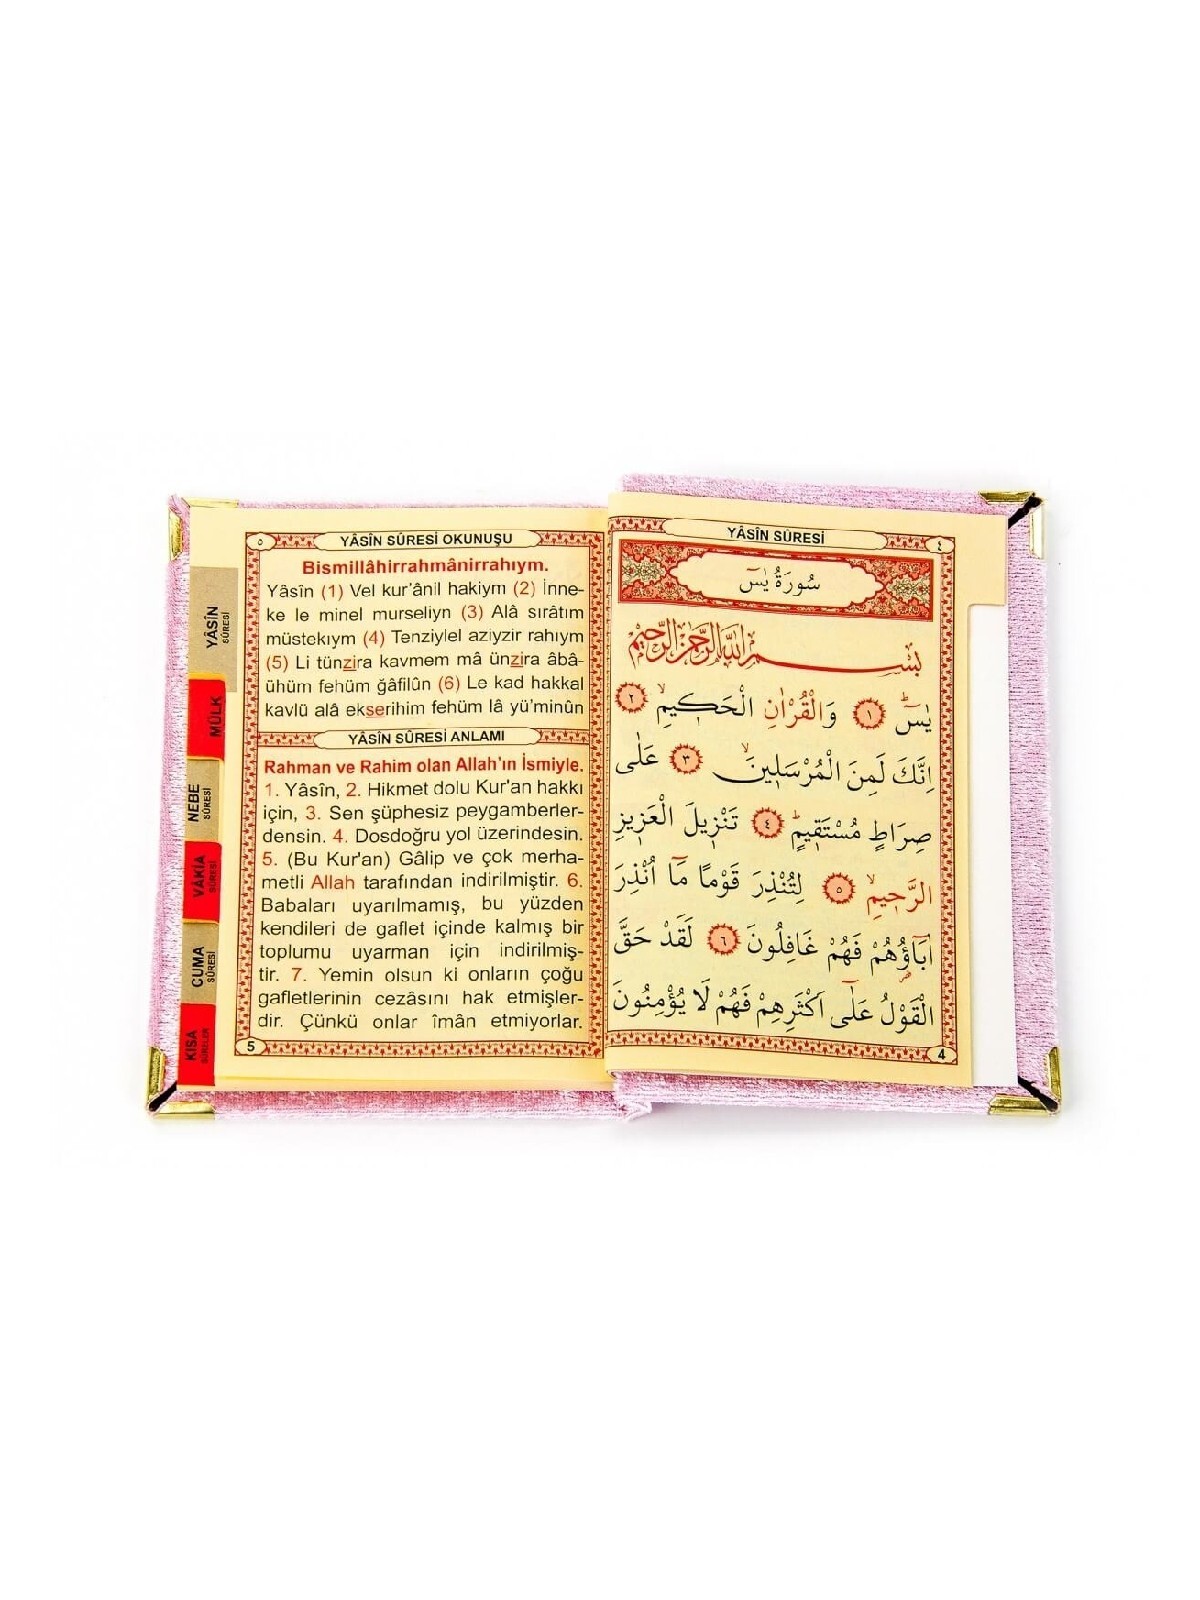 YÂSİN
SÛRESİ
MÜLK
NEBE
SÛRESİ
VÂKİA
SÛRESİ
CUMA
SÛRESİ
KISA
SÛRELER
٥
YÂSÎN SÛRESİ OKUNUŞU
Bismillâhirrahmânirrahıym.
Yâsîn (1) Vel kur'ânil hakiym (2) İnne-
ke le minel murseliyn (3) Alâ sırâtım
müstekıym (4) Tenziylel aziyzir rahıym
(5) Li tünzira kavmem mâ ünzira âbâ-
ühüm fehüm ğâfilûn (6) Le kad hakkal
kavlü alâ ekserihim fehüm lâ yü'minûn
YÂSÎN SÛRESİ ANLAMI
Rahman ve Rahim olan Allah'ın İsmiyle.
1. Yâsîn, 2. Hikmet dolu Kur'an hakkı
için, 3. Sen şüphesiz peygamberler-
densin. 4. Dosdoğru yol üzerindesin.
5. (Bu Kur'an) Gâlip ve çok merha-
metli Allah tarafından indirilmiştir. 6.
Babaları uyarılmamış, bu yüzden
kendileri de gaflet içinde kalmış bir
toplumu uyarman için indirilmiş-
tir. 7. Yemin olsun ki onların çoğu
gafletlerinin cezâsını hak etmişler-
dir. Çünkü onlar îmân etmiyorlar.
5
YÂSÎN SÛRESİ
٤
سُورَةُ يٰسٓ
بِسْمِ اللّٰهِ الرَّحْمٰنِ الرَّحِيمِ
يٰسٓ ۚ ﴿١﴾ وَالْقُرْاٰنِ الْحَكِيمِۙ ﴿٢﴾
اِنَّكَ لَمِنَ الْمُرْسَلِينَۙ ﴿٣﴾ عَلٰى
صِرَاطٍ مُسْتَقِيمٍۜ ﴿٤﴾ تَنْزِيلَ الْعَزِيزِ
الرَّحِيمِۙ ﴿٥﴾ لِتُنْذِرَ قَوْمًا مَٓا اُنْذِرَ
اٰبَٓاؤُهُمْ فَهُمْ غَافِلُونَ ﴿٦﴾ لَقَدْ حَقَّ
الْقَوْلُ عَلٰٓى اَكْثَرِهِمْ فَهُمْ لَا يُؤْمِنُونَ
4